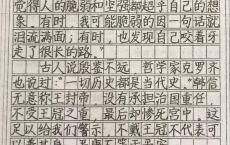 觉得人的脆弱和坚强都超乎自己的想
象。有时，我可能脆弱的因一句话就
泪流满面；有时，也发现自己咬着牙
走了很长的路。”
古人说殷鉴不远，哲学家克罗齐
也说过“一切历史都是当代史。”韩信
无意称王封帝，没有承担治国重任，
不受王冠之重，最后却惨死宫中。这
足以给我们警示，不戴王冠不代表可